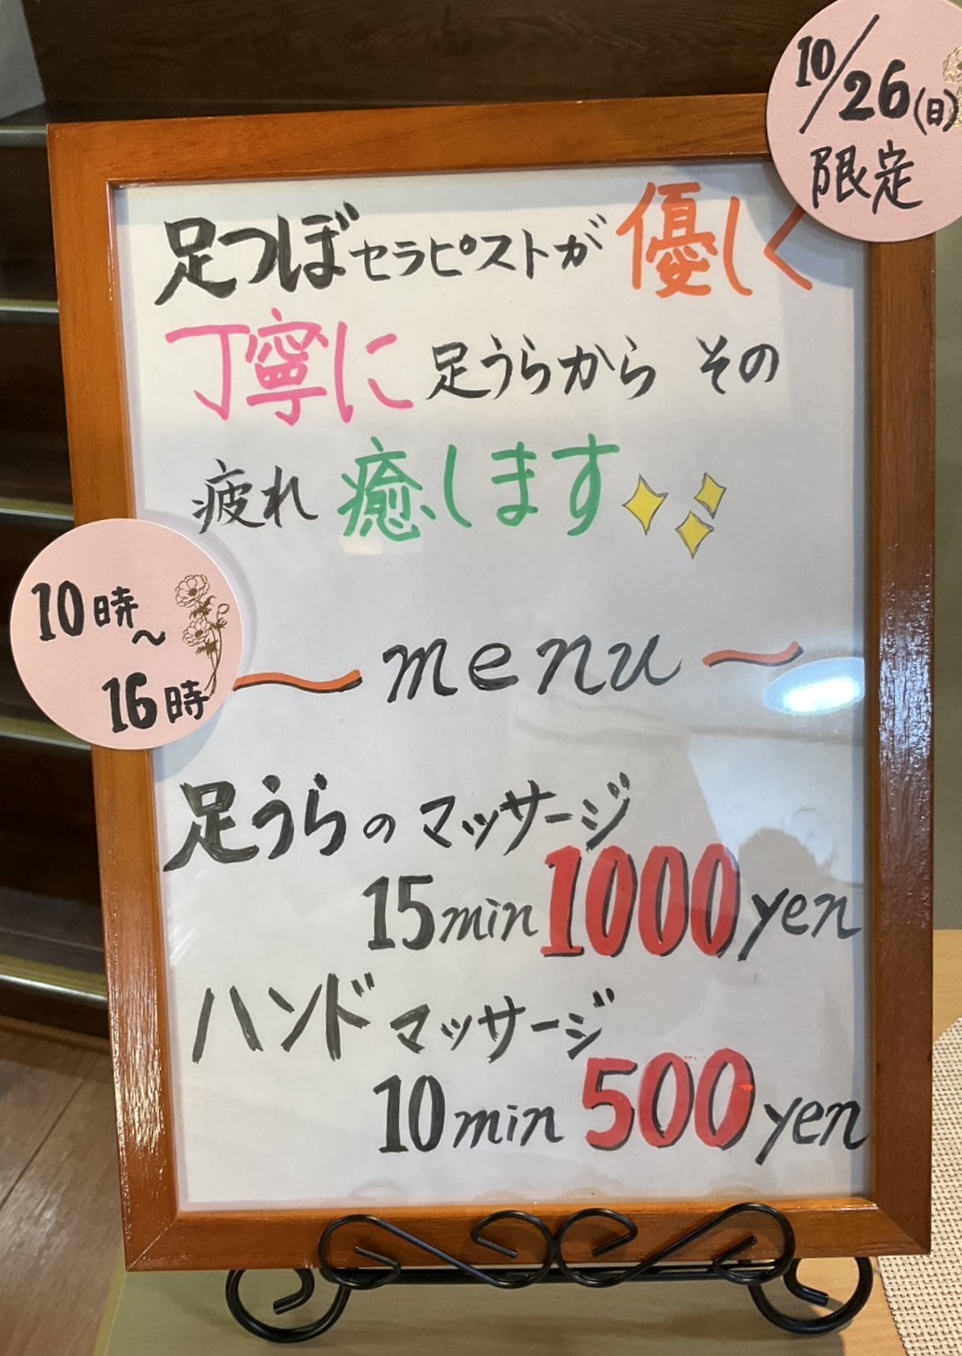 10/26(日)
限定
足つぼセラピストが優しく
丁寧に足うらから その
疲れ 癒します
10時~
16時
~menu~
足うらのマッサージ
15min1000yen
ハンドマッサージ
10min 500yen